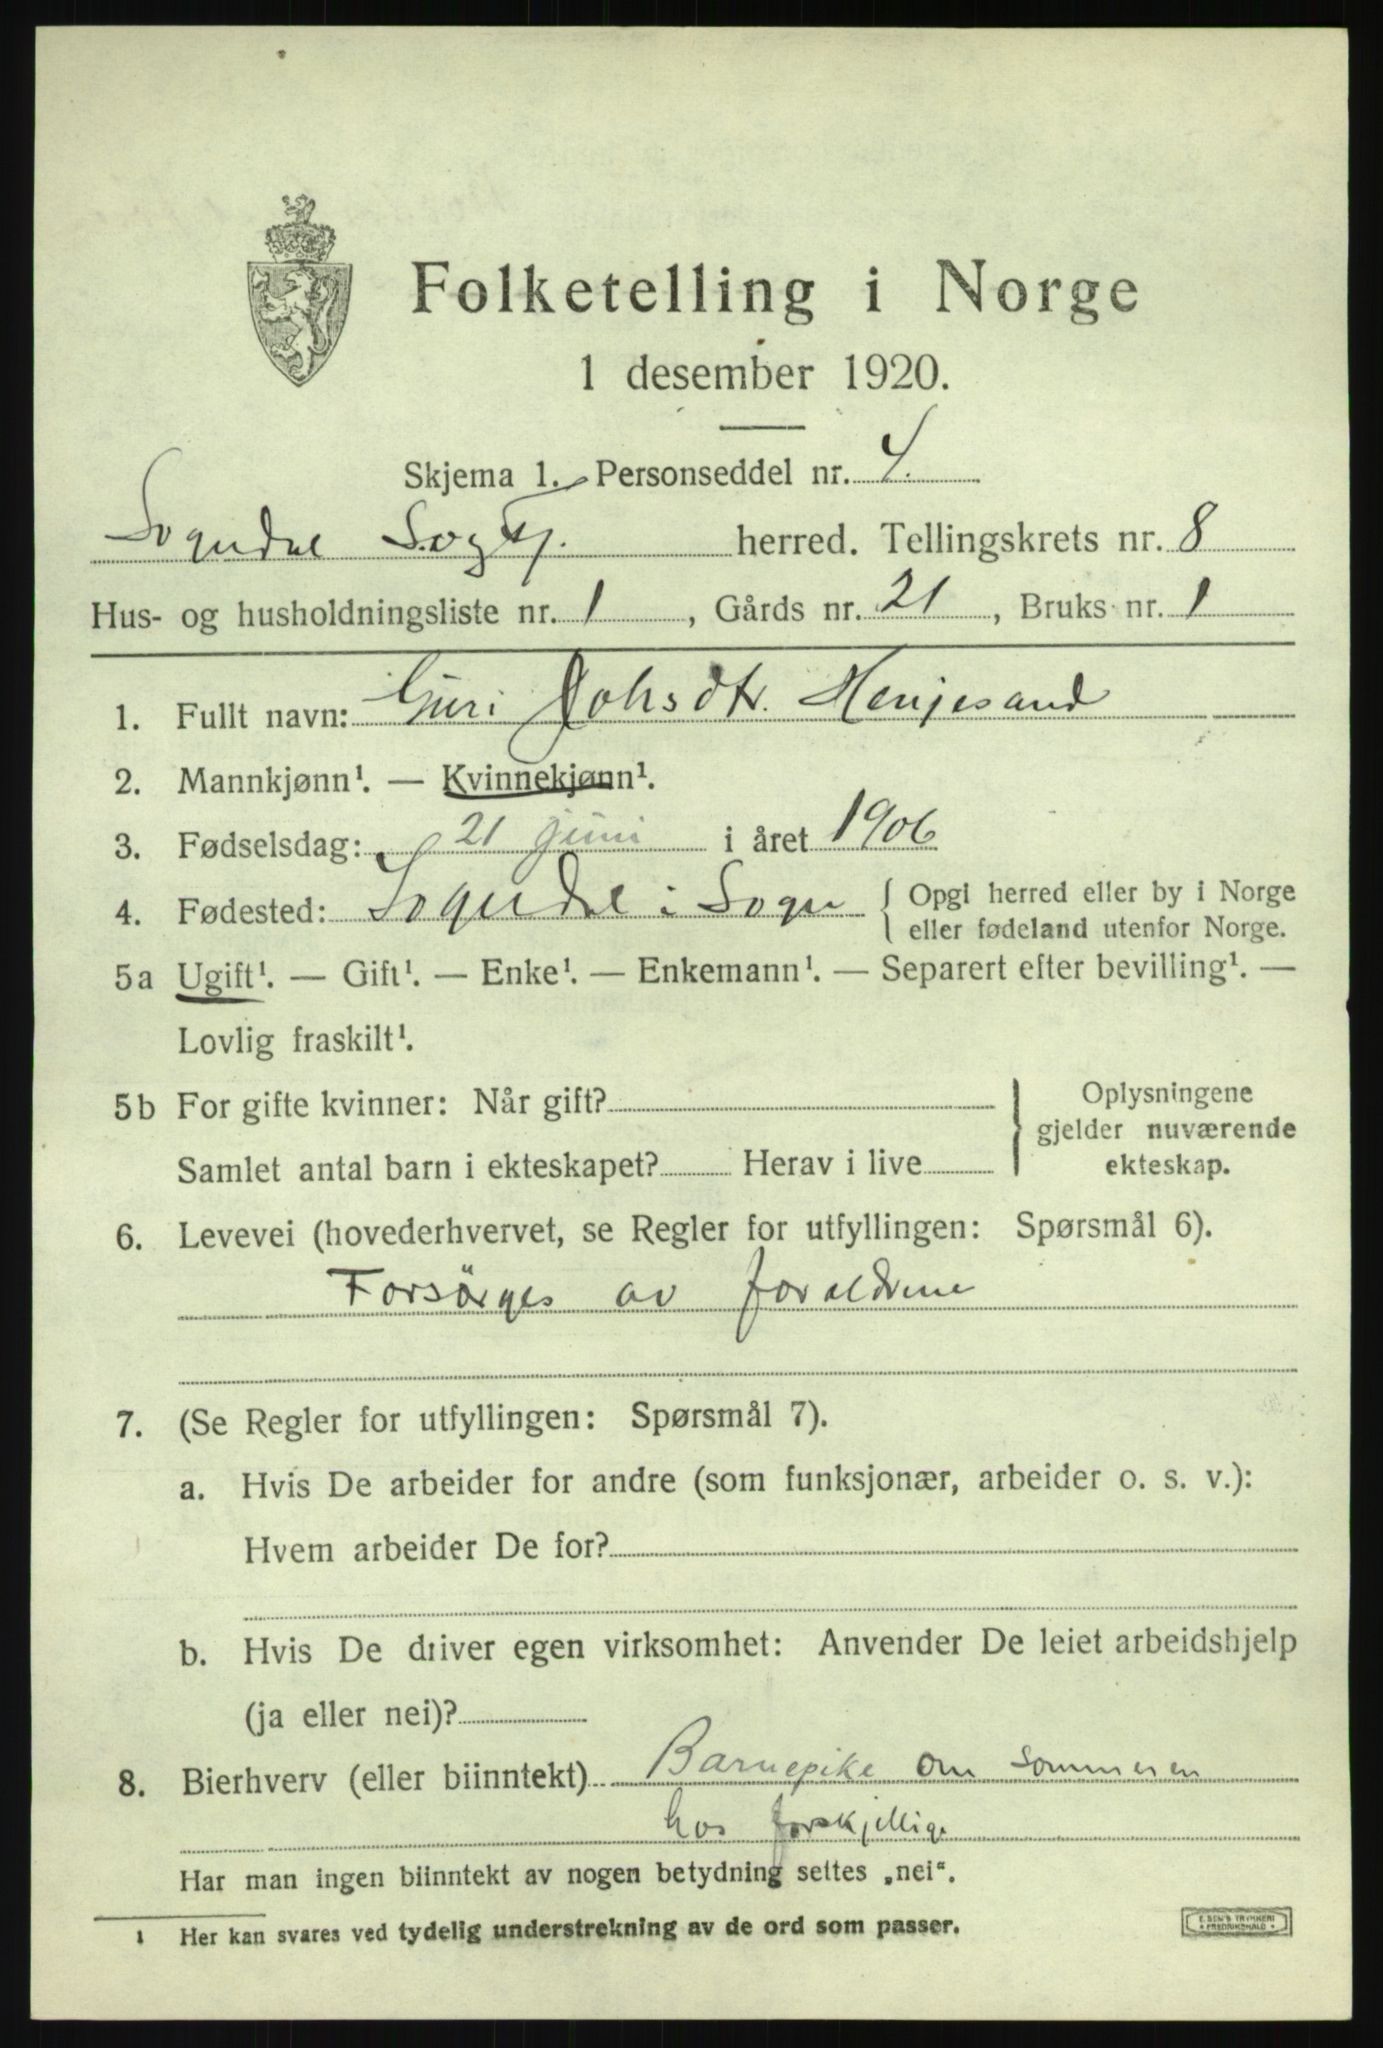 Folketelling i Norge
1 desember 1920.
Skjema 1. Personseddel nr. 4.
Sogndal herred. Tellingskrets nr. 8
Hus- og husholdningsliste nr. 1, Gårds nr. 21, Bruks nr. 1
1. Fullt navn: Guri Johsdtr. Henjesand
2. Mannkjønn¹. — Kvinnekjønn¹.
3. Fødselsdag: 21 juni i året 1906
4. Fødested: Sogndal i Sogn { Opgi herred eller by i Norge
eller fødeland utenfor Norge.
5a Ugift¹. — Gift¹. — Enke¹. — Enkemann¹. — Separert efter bevilling¹. —
Lovlig fraskilt¹.
5b For gifte kvinner: Når gift? } Oplysningene
gjelder nuværende
Samlet antal barn i ekteskapet? Herav i live ekteskap.
6. Levevei (hovederhvervet, se Regler for utfyllingen: Spørsmål 6).
Forsörges av foraldrene
7. (Se Regler for utfyllingen: Spørsmål 7).
a. Hvis De arbeider for andre (som funksjonær, arbeider o. s. v.):
Hvem arbeider De for?
b. Hvis De driver egen virksomhet: Anvender De leiet arbeidshjelp
(ja eller nei)?
8. Bierhverv (eller biinntekt) Barnepike om sommeren
hos forskjellige
Har man ingen biinntekt av nogen betydning settes „nei“.
1 Her kan svares ved tydelig understrekning av de ord som passer.
E. SEM'S TRYKKERI
FREDRIKSHALD